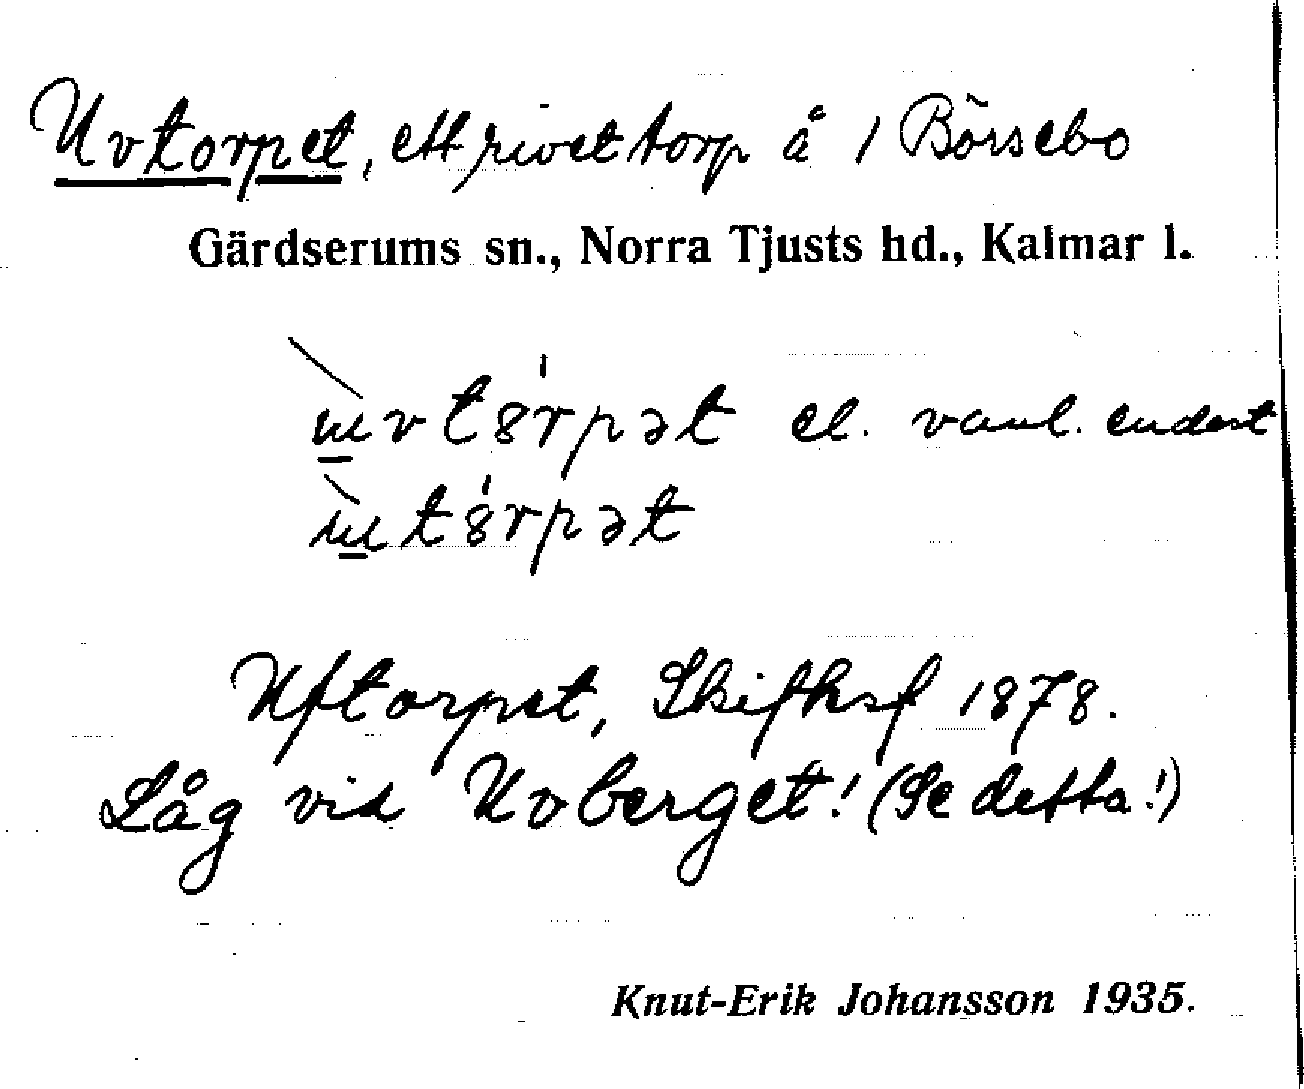 Uvtorpet, ett rivet torp å 1 Börsebo
Gärdserums sn., Norra Tjusts hd., Kalmar l.
ɯ̀vtȣ́rpət el. vanl. endast
ɯ̀tȣ́rpət
Uftorpet, Skifhsf 1878.
Låg vid Uvberget! (Se detta!)
Knut-Erik Johansson 1935.